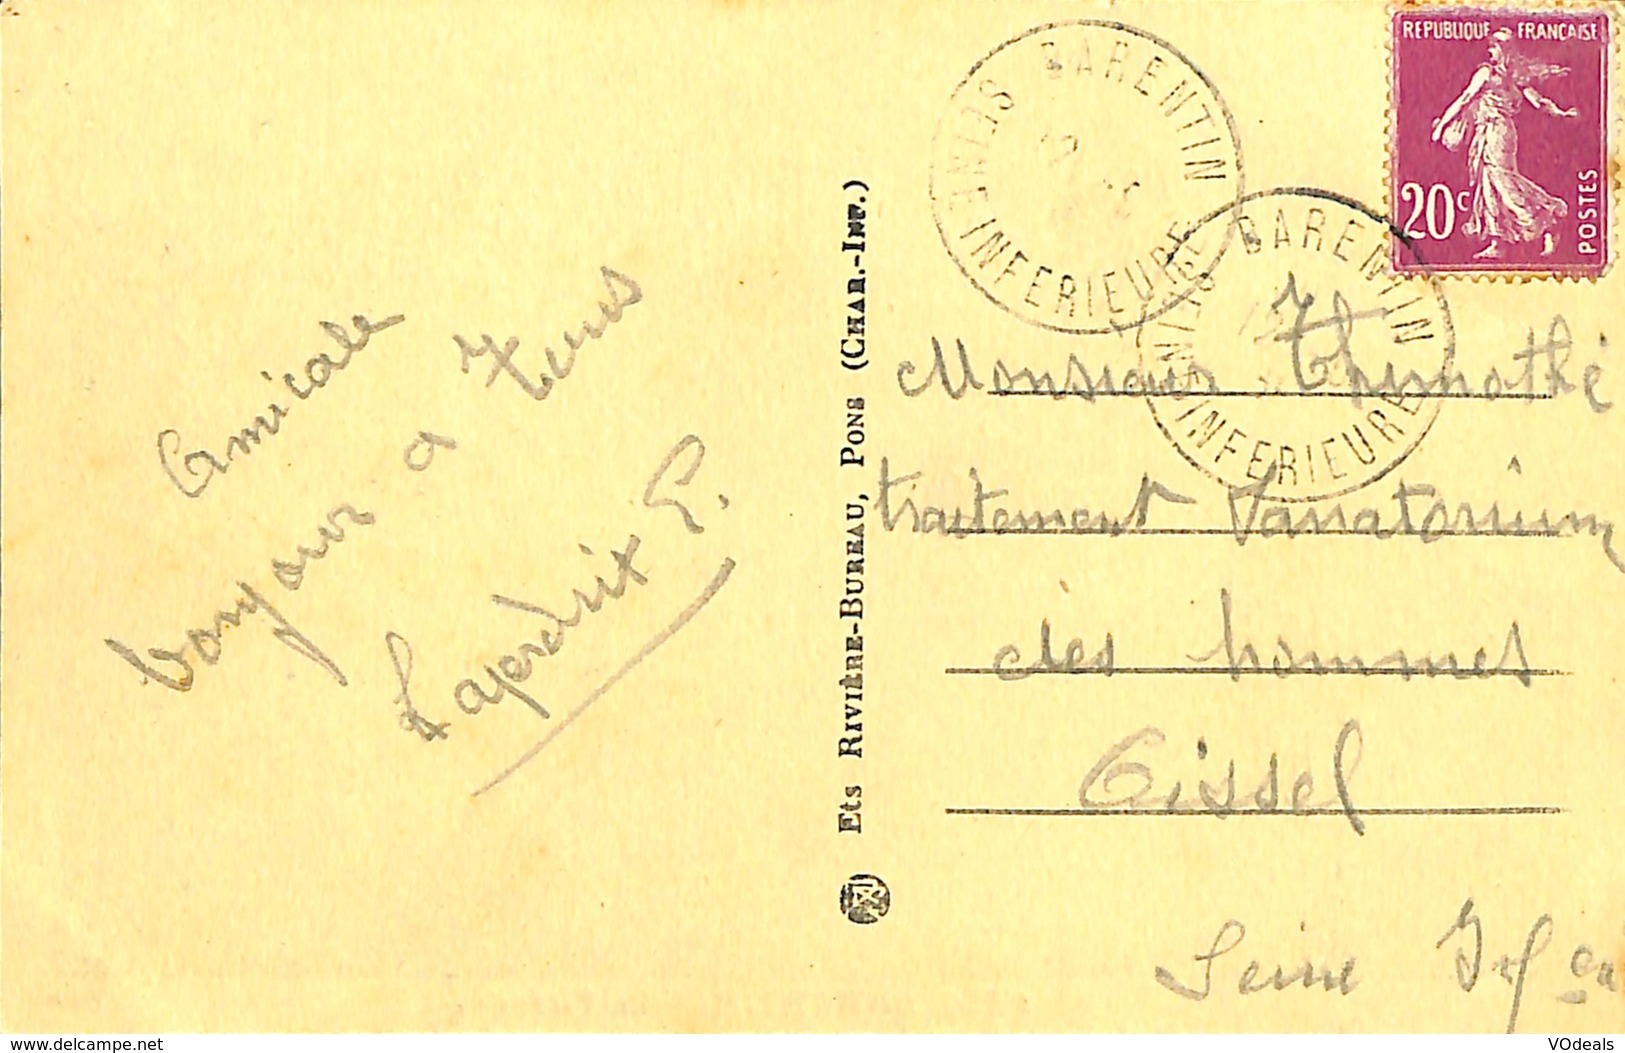 Amicale
bonjour a Tous
Laperdrix P.
Ets RIVIÈRE-BUREAU, PONS (CHAR.-INF.)
BARENTIN
SEINE INFERIEURE
BARENTIN
SEINE INFERIEURE
REPUBLIQUE FRANÇAISE
20c
POSTES
Monsieur Thimothé
traitement Sanatorium
des hommes
Oissel
Seine Infre
delcampe.net
VOdeals